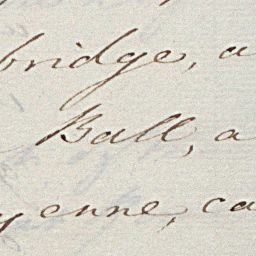 bridge, a
Ball, a
yenne, ca